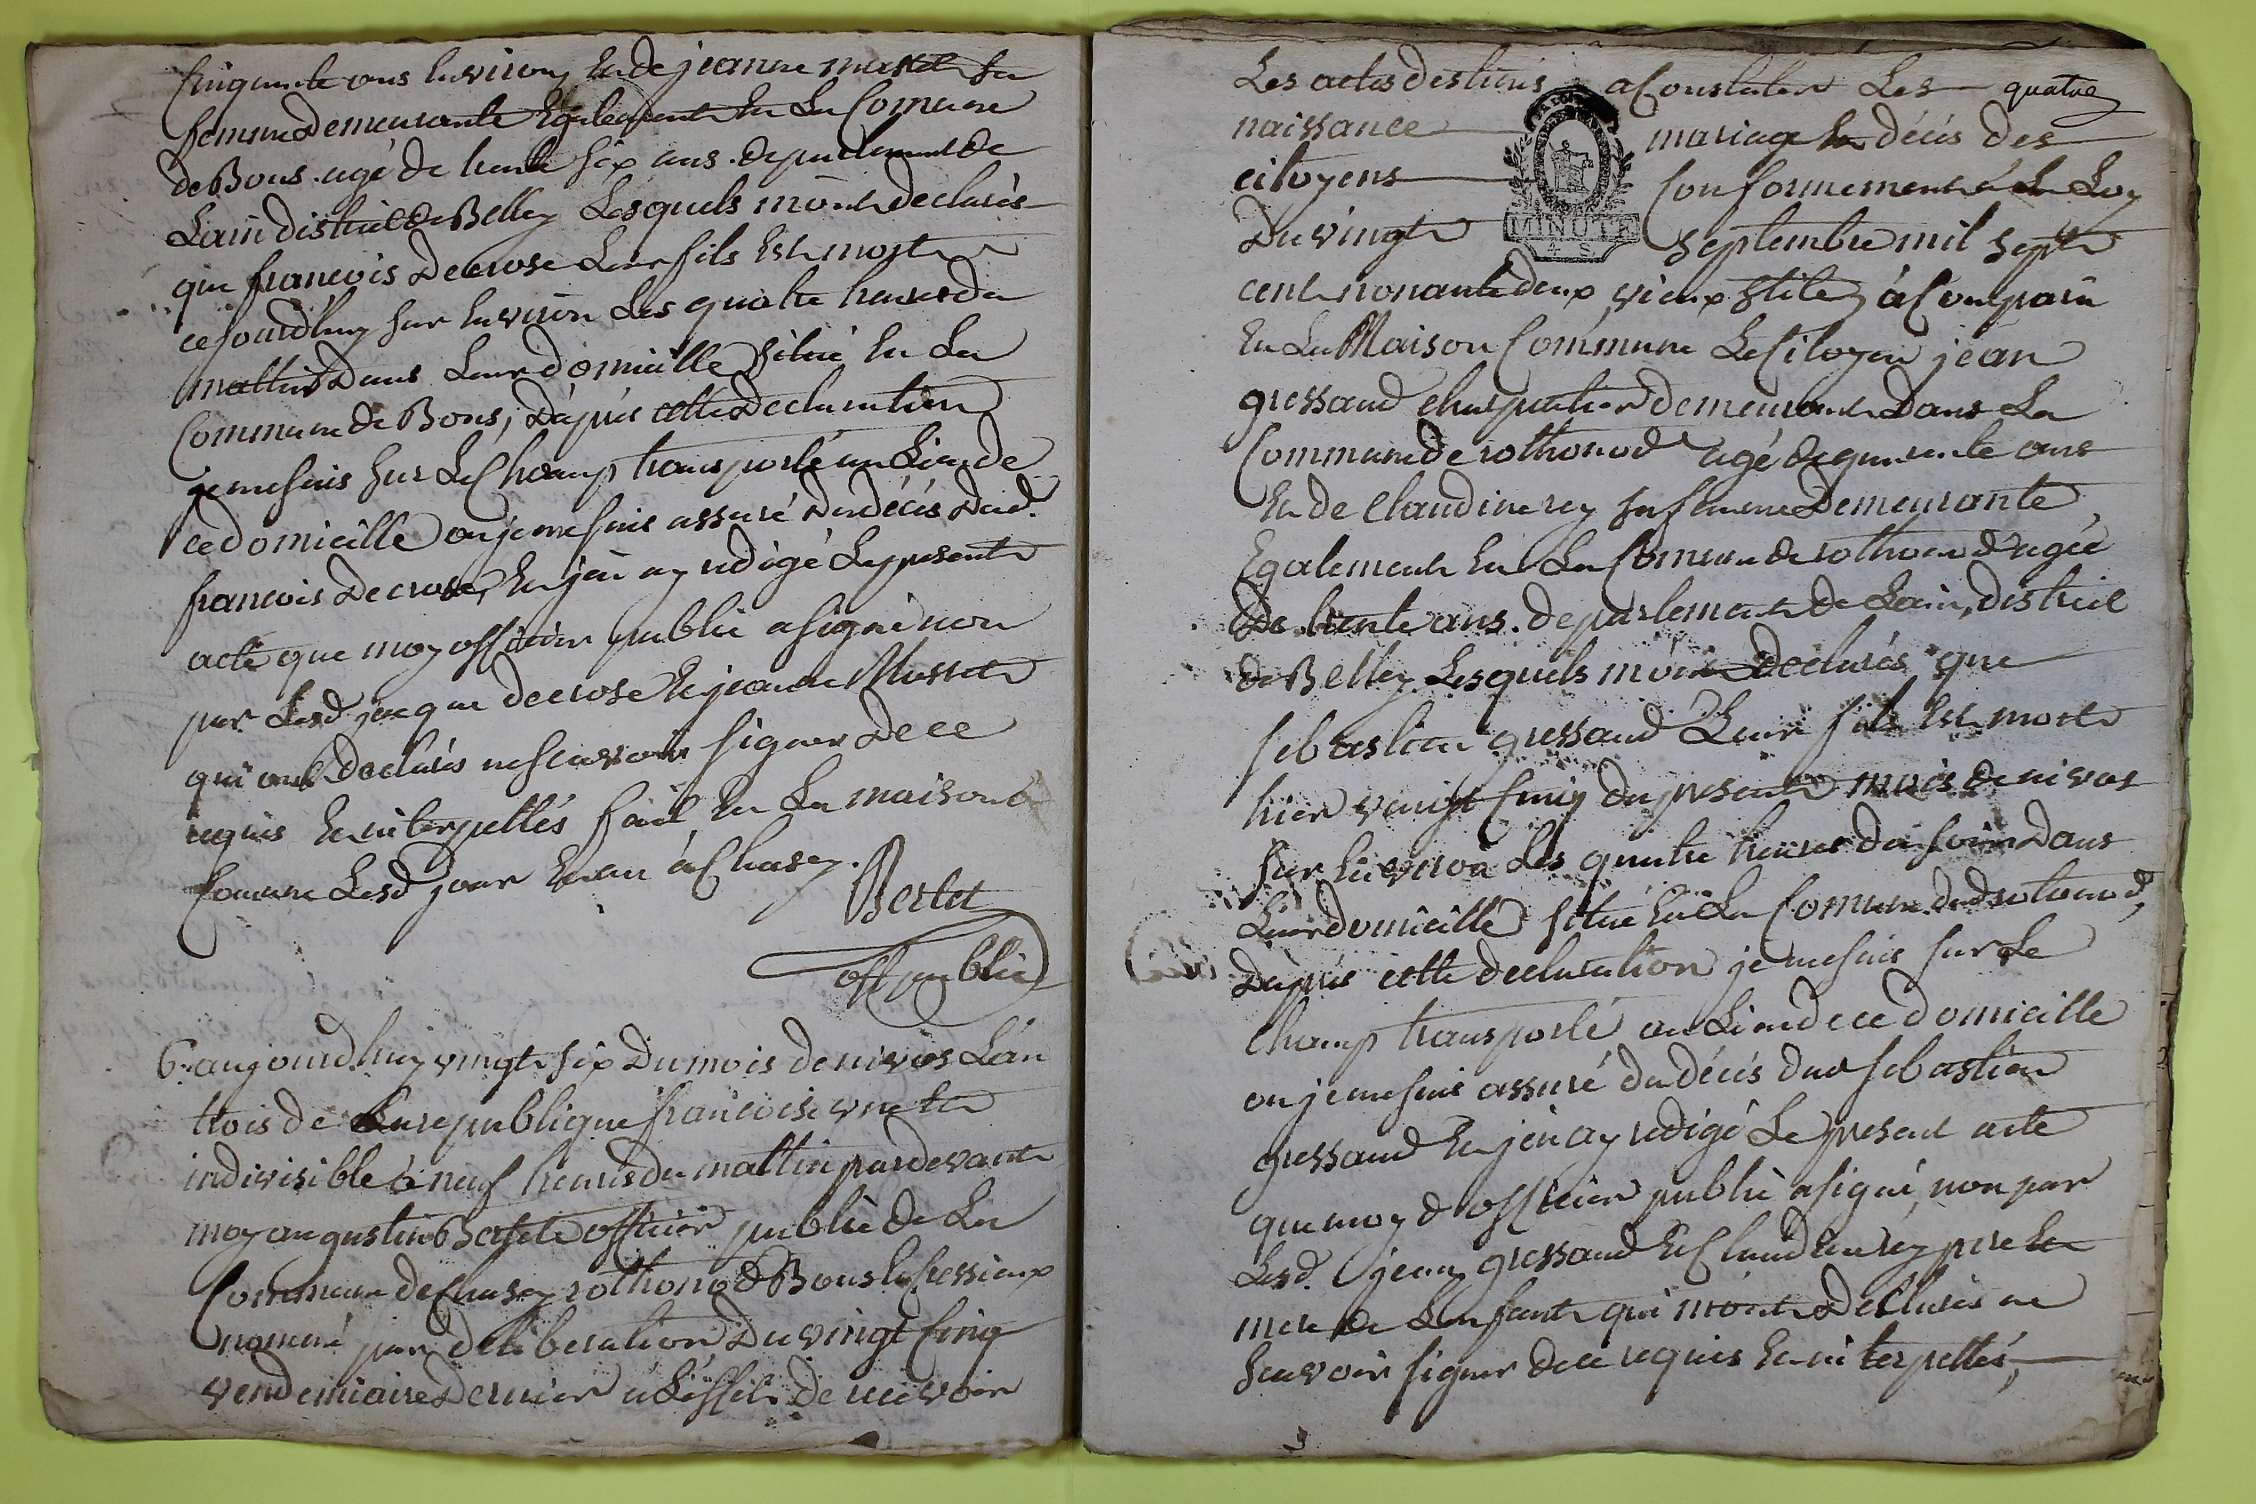 Cinquante ans Environ Et de jeanne mustel sa
femme demeurante Egalement En La Comune
de Bons. agé de trente six ans. departement de
Lain district de Belley Lesquels mont declarés
que francois Decrose Leur fils Est mort
ce jourdhuy sur Environ Les quatre heures du
mattin Dans Leur domicille situé En La
Commune de Bons, Dapres cette Declaration
je me suis sur Le Champ transporté au Lieu de
ce domicille ou je me suis assuré du décés dud.
francois Decrose, Et jen ay redigé Le present
acte que moy officier public a signé non
par Lesd jacque decrose Et jeanne Mustel
qui ont declarés ne scavoir signer de ce
requis Et interpellés fait En La maison
Comune Lesd jour Et an à Chasey.
Bertet
off public
6. aujourdhuy vingt six Du mois de nivos Lan
trois de La republique francoise une Et
indivisible à neuf heures du mattin pardevant
moy augustin Bertet officier public de La
Commune de Chasey rothonod Bons Et Cressieux
nommé par deliberation Du vingt Cinq
vendemiaire Dernier a Leffet de recevoir
Les actes destinés a Constater Les quatre
naissance mariage Et décés des
citoyens Conformement à La Loy
Du vingt septembre mil sept
MINUTE
4. S.
cent nonante deux, vieux stile, à Comparu
En La Maison Commune Le Citoyen jean
gressaud charpentier demeurant Dans La
Commune de rothonod agé de quarente ans
Et de Claudine rey sa femme Demeurante
Egalement En La Comune de rothonod agée
De trente ans. departement de Lain, district
de Belley Lesquels mont Declarés que
sebastien gressaud Leur fils Est mort
hier vingt Cinq du present mois de nivos
sur Environ Les quatre heures du soir Dans
Leur domicille situé En La Comune dud rotonod,
Dapres cette declaration je me suis sur Le
Champ transporté au Lieu de ce domicille
ou je me suis assuré du décés dud sebastien
gressaud Et jen ay redigé Le present acte
que moy d officier public a signé, non par
Lesd. jean gressaud Et Claudine rey pere Et
mere de Lenfant qui mont Declarés ne
scavoir signer de ce requis Et interpellés,